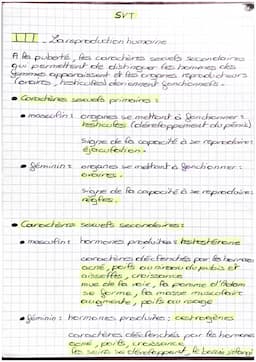 SVT
III - La reproduction humaine
A la puberté, les caractères sexuels secondaires
qui permettent de distinguer les hommes des
femmes apparaissent et les organes reproducteurs
(ovaires, testicules) deviennent fonctionnels.
• Caractères sexuels primaires :
• masculins : organes se mettant à fonctionner :
testicules (développement du pénis)
signe de la capacité à se reproduire :
éjaculation.
• féminins : organes se mettant à fonctionner :
ovaires.
signe de la capacité à se reproduire :
règles.
• Caractères sexuels secondaires :
• masculins : hormones produites : testostérone
caractères déclenchés par les hormones
acné, poils au niveau du pubis et
aisselles, croissance
mue de la voix, la pomme d'Adam
se forme, la masse musculaire
augmente, poils au visage
• féminins : hormones produites : œstrogènes
caractères déclenchés par les hormones
acné, poils, croissance
les seins se développent, le bassin s'élargit